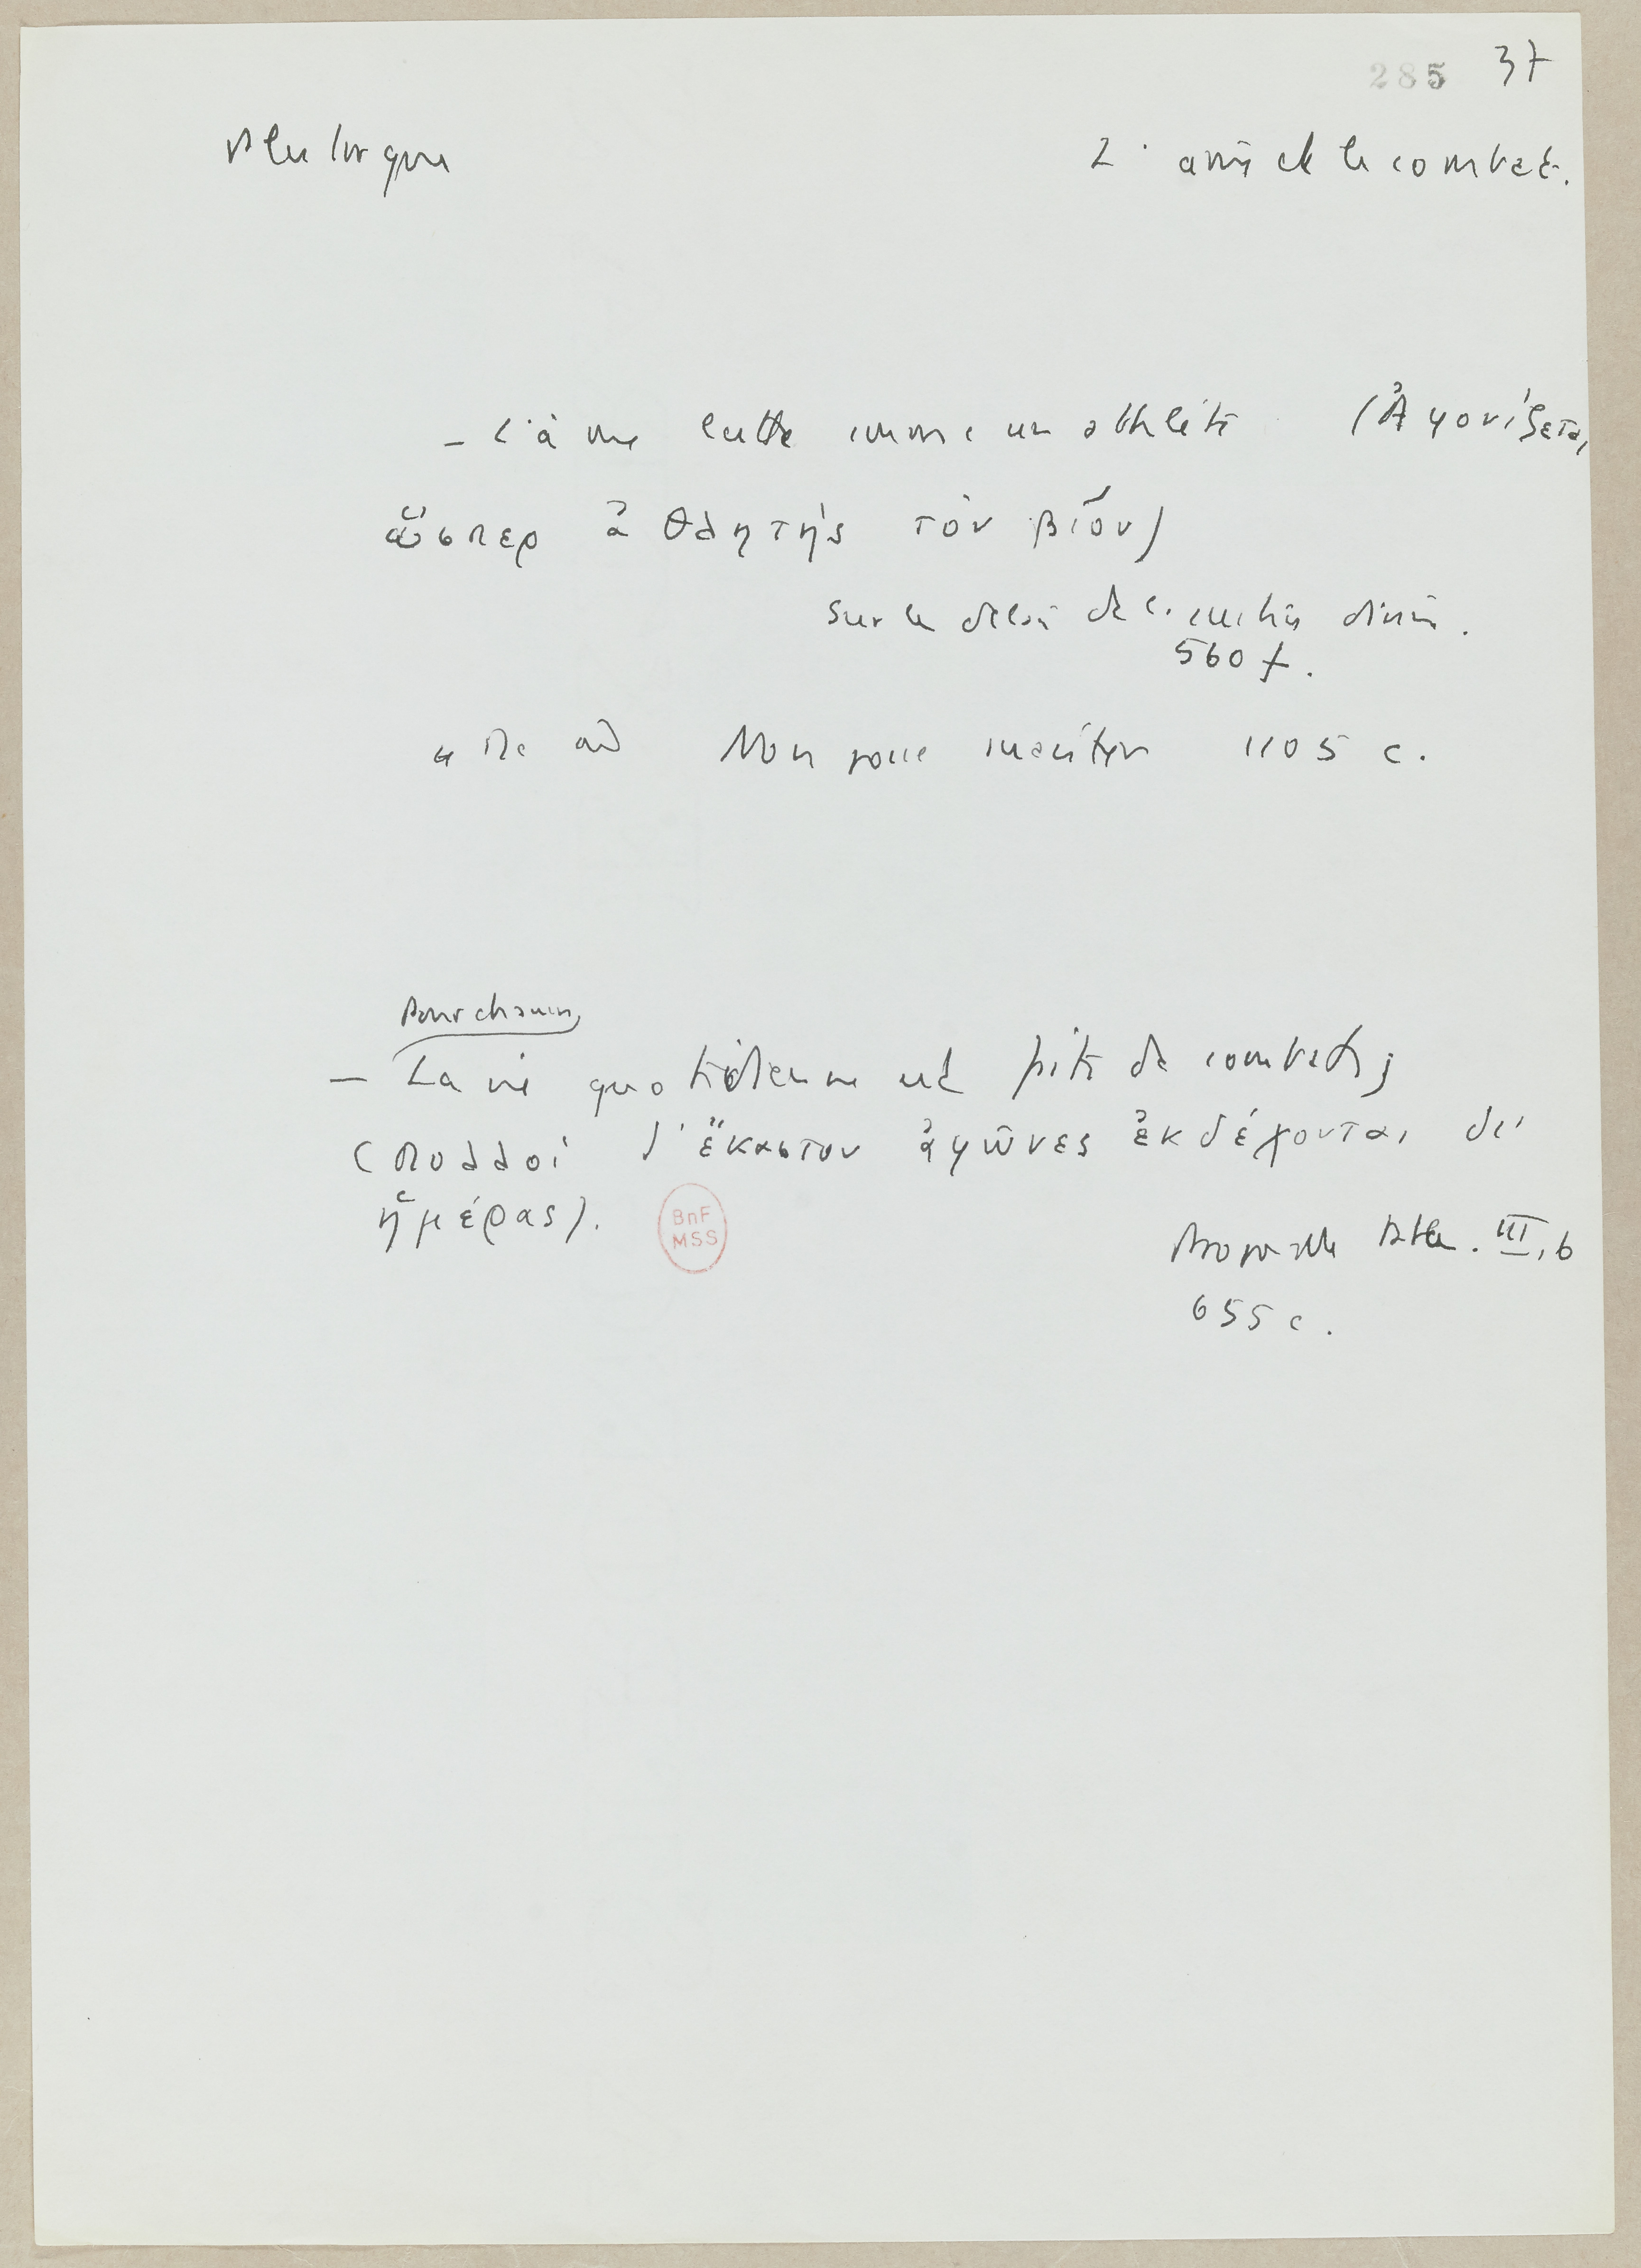 285 37
Plutarque
L'âme et le combat.
- L'âme lutte comme un athlète (Ἀγονίζεται
ὥσπερ ἀθλητής τὸν βίον)
Sur les délais de la justice divine.
560 f.
Non posse suaviter 1105 c.
Pour chacun,
- La vie quotidienne est faite de combats;
(πολλοί δ' ἕκαστον ἀγῶνες ἐκδέχονται δι'
ἡμέρας).
BnF
MSS
Propos de Table. III, 6
655 c.